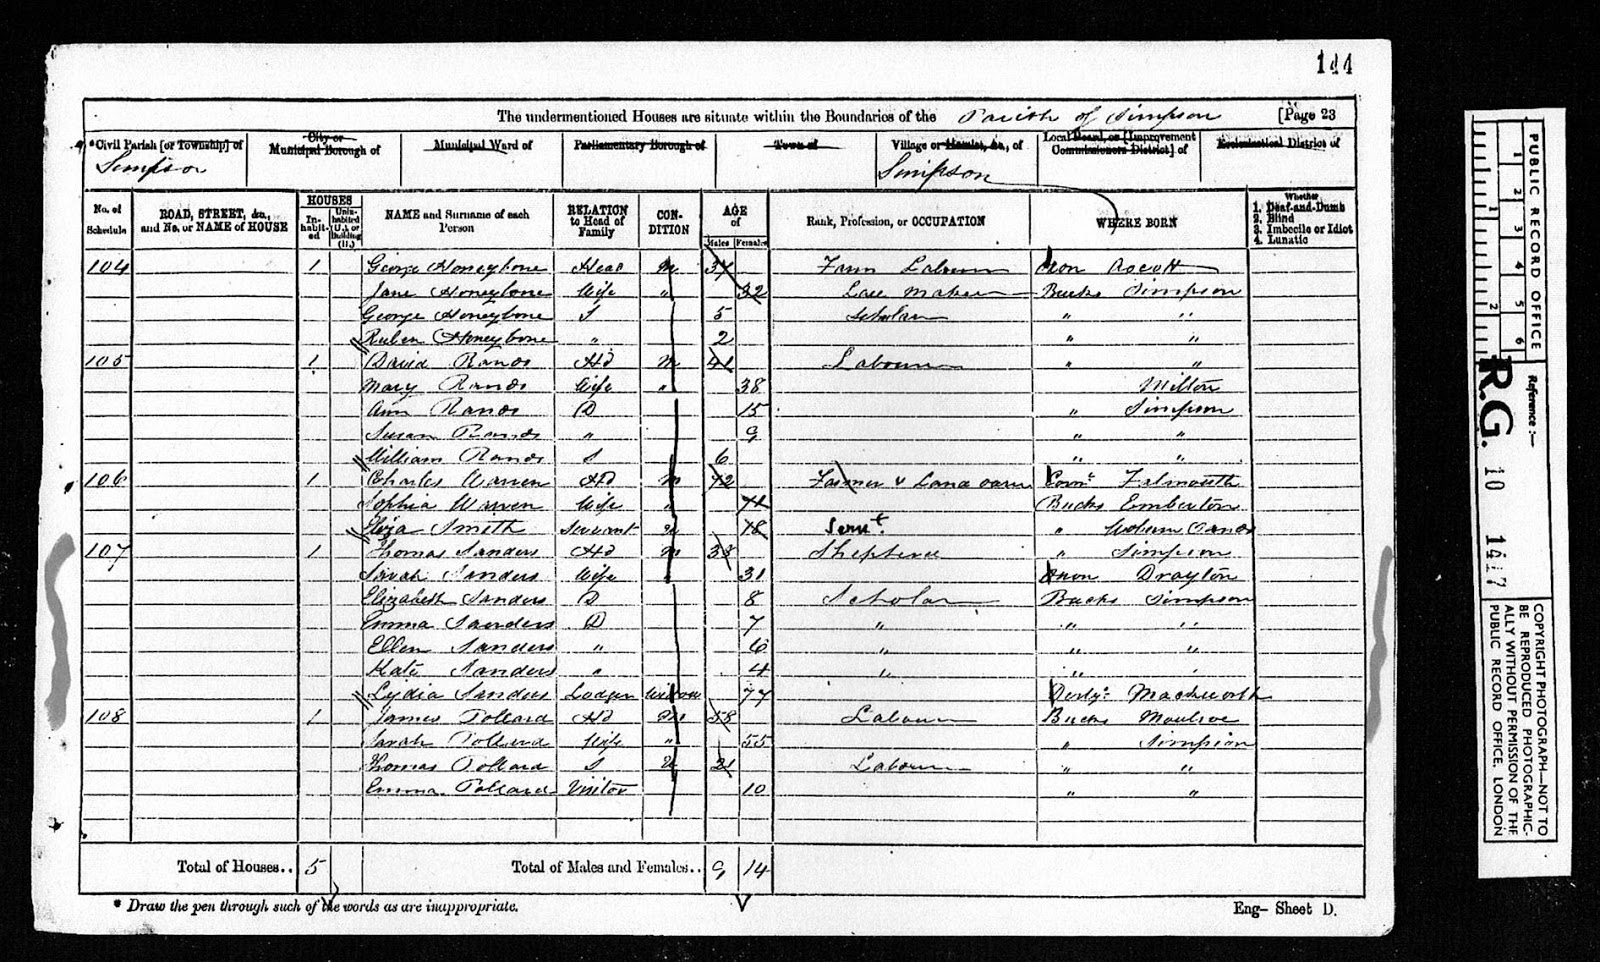 144
The undermentioned Houses are situate within the Boundaries of the Parish of Simpson [Page 23
*Civil Parish [or Township] of City or Municipal Borough of Municipal Ward of Parliamentary Borough of Town of Village or Hamlet, &c., of Local Board, or [Improvement Commissioners District] of Ecclesiastical District of
Simpson Simpson
No. of Schedule ROAD, STREET, &c., and No. or NAME of HOUSE HOUSES Inhabited Uninhabited (U.), or Building (B.) NAME and Surname of each Person RELATION to Head of Family CONDITION AGE of Males Females Rank, Profession, or OCCUPATION WHERE BORN Whether 1. Deaf-and-Dumb 2. Blind 3. Imbecile or Idiot 4. Lunatic
104 1 George Honeybone Head M 37 Farm Labourer Oxon Ascott
Jane Honeybone Wife " 32 Lace Maker Bucks Simpson
George Honeybone S 5 Scholar " "
Ruben Honeybone " 2 " "
105 1 David Rands Hd M 41 Labourer " "
Mary Rands Wife " 38 Milton
Ann Rands D 15 " Simpson
Susan Rands " 9 " "
William Rands S 6 " "
106 1 Charles Warren Hd M 72 Farmer & Landowner Corn: Falmouth
Sophia Warren Wife " 74 Bucks Emberton
Eliza Smith Servant U 18 Servt. " Woburn Sands
107 1 Thomas Sanders Hd M 38 Shepherd " Simpson
Sarah Sanders Wife 31 Oxon Drayton
Elizabeth Sanders D 8 Scholar Bucks Simpson
Emma Saunders D 7 " " "
Ellen Sanders " 6 " " "
Kate Sanders " 4 " " "
Lydia Sanders Lodger Widow 77 Derby: Mackworth
108 1 James Pollard Hd M 58 Labourer Bucks Moulsoe
Sarah Pollard Wife " 55 " Simpson
Thomas Pollard S U 21 Labourer " "
Emma Pollard Visitor 10 " "
Total of Houses.. 5 Total of Males and Females.. 9 14
* Draw the pen through such of the words as are inappropriate. Eng- Sheet D.
PUBLIC RECORD OFFICE
1 2 3 4 5 6
1 2
Reference:—
R.G. 10 1417
COPYRIGHT PHOTOGRAPH—NOT TO BE REPRODUCED PHOTOGRAPHIC-
ALLY WITHOUT PERMISSION OF THE
PUBLIC RECORD OFFICE, LONDON